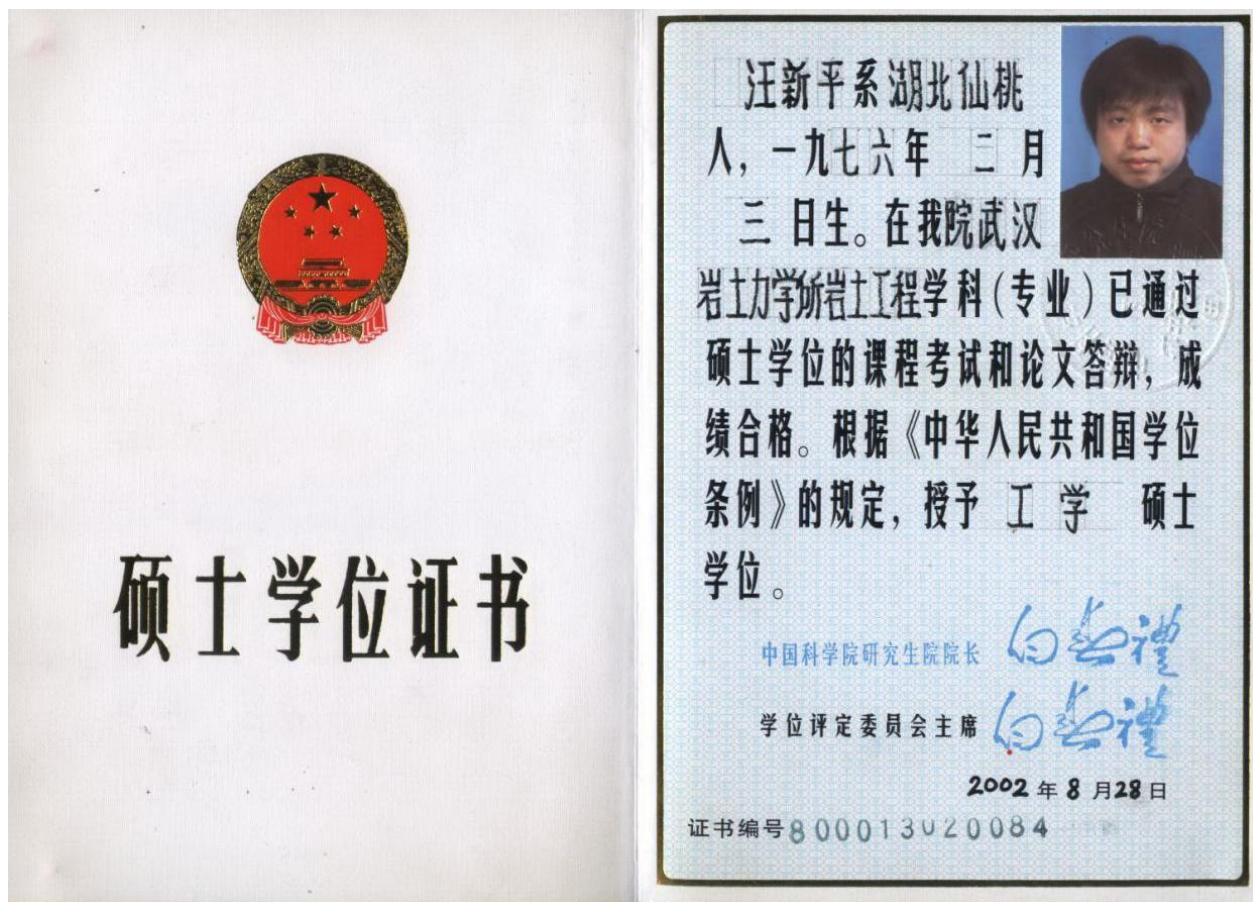 硕士学位证书
汪新平系湖北仙桃
人，一九七六年 二 月
三 日生。在我院武汉
岩土力学所岩土工程学科（专业）已通过
硕士学位的课程考试和论文答辩，成
绩合格。根据《中华人民共和国学位
条例》的规定，授予 工 学 硕士
学位。
中国科学院研究生院院长
学位评定委员会主席
2002 年 8 月 28 日
证书编号800013020084